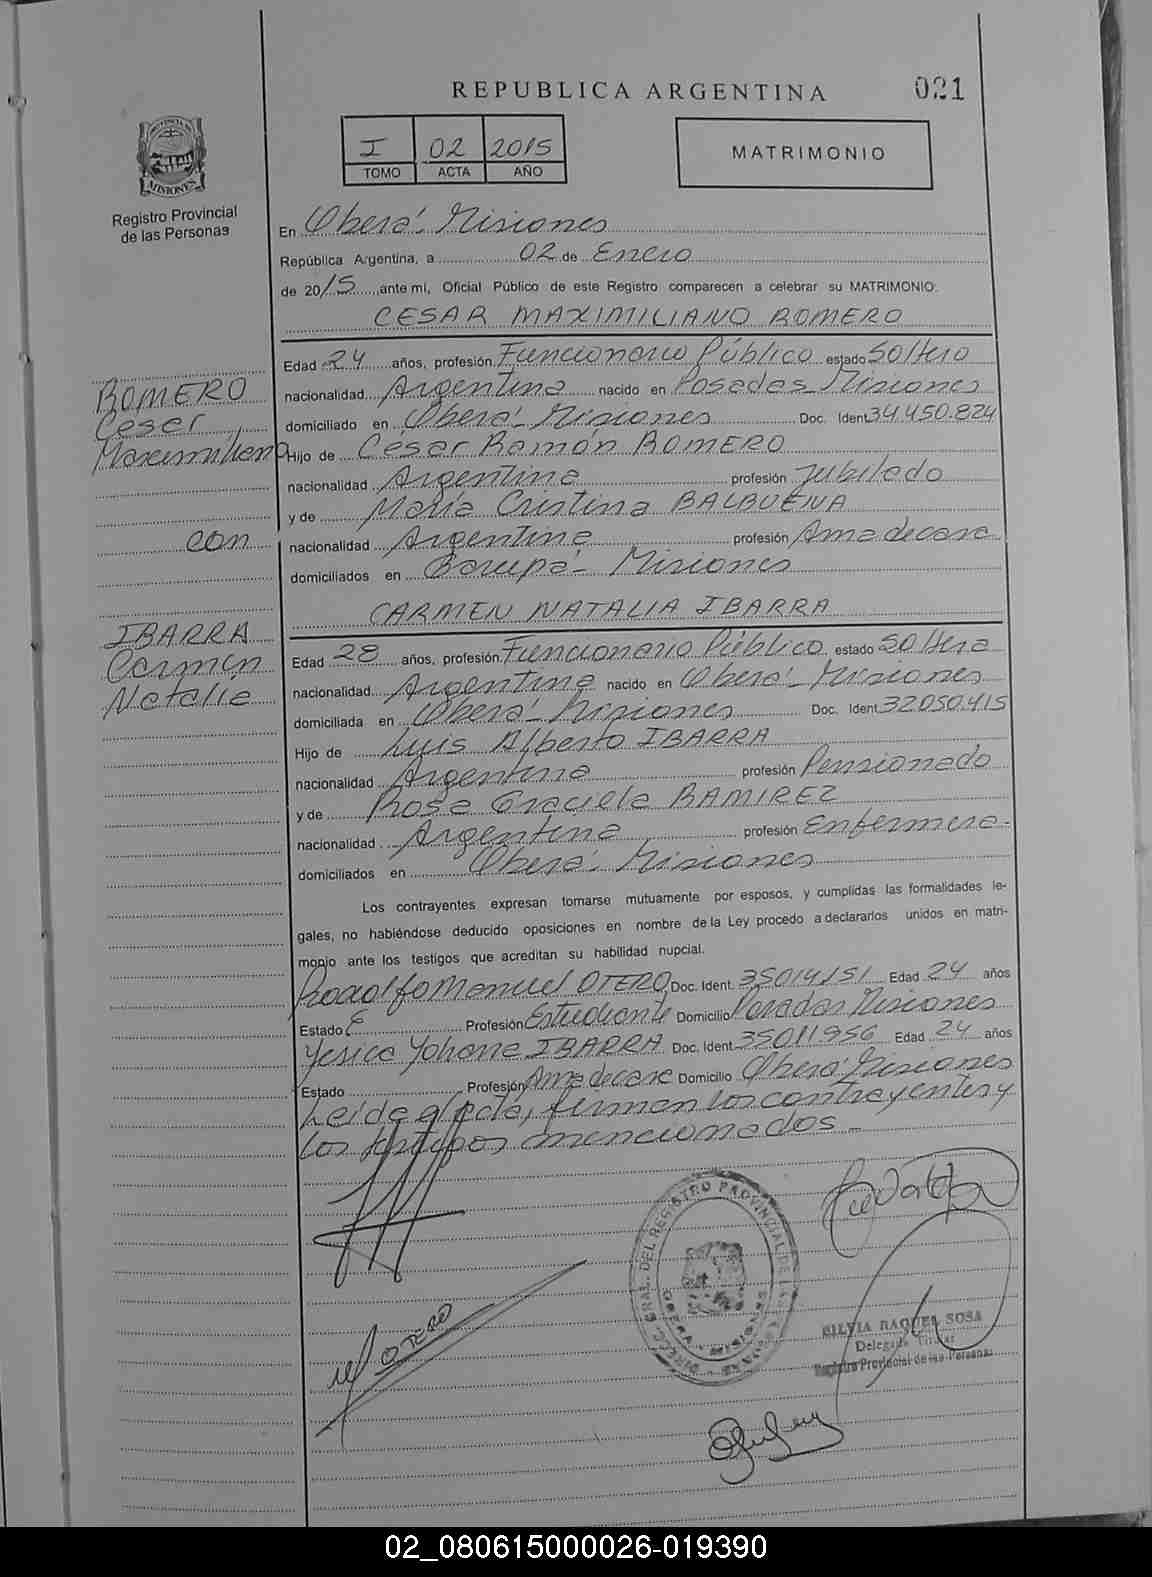 REPUBLICA ARGENTINA
021
I 02 2015
TOMO ACTA AÑO
MATRIMONIO
PROVINCIA DE
MISIONES
Registro Provincial
de las Personas
En Oberá - Misiones
República Argentina, a 02 de Enero
de 2015 ante mí, Oficial Público de este Registro comparecen a celebrar su MATRIMONIO:
CESAR MAXIMILIANO ROMERO
Edad 24 años, profesión Funcionario Público estado Soltero
nacionalidad Argentina nacido en Posadas Misiones
domiciliado en Oberá - Misiones Doc. Ident 34.450.824
Hijo de César Ramón ROMERO
nacionalidad Argentina profesión Jubilado
y de María Cristina BALBUENA
nacionalidad Argentina profesión Ama de casa
domiciliados en Garupá - Misiones
ROMERO
Cesar
Maximiliano
con
IBARRA
Carmen
Natalia
CARMEN NATALIA IBARRA
Edad 28 años, profesión Funcionario Público estado Soltera
nacionalidad Argentina nacido en Oberá - Misiones
domiciliada en Oberá - Misiones Doc. Ident 32050.415
Hijo de Luis Alberto IBARRA
nacionalidad Argentina profesión Pensionado
y de Rosa Graciela RAMIREZ
nacionalidad Argentina profesión Enfermera
domiciliados en Oberá - Misiones
Los contrayentes expresan tomarse mutuamente por esposos, y cumplidas las formalidades le-
gales, no habiéndose deducido oposiciones en nombre de la Ley procedo a declararlos unidos en matri-
monio ante los testigos que acreditan su habilidad nupcial.
Rodolfo Manuel OTERO Doc. Ident. 35014151 Edad 24 años
Estado Profesión Estudiante Domicilio Posadas Misiones
Yesica Yohana IBARRA Doc. Ident 35011.956 Edad 24 años
Estado Profesión Ama de casa Domicilio Oberá Misiones
Leída el acta, firman los contrayentes y
los testigos mencionados -
DIREC. GRAL. DEL REGISTRO PROVINCIAL DE LAS PERSONAS
OBERA - MISIONES
OTERO
SILVIA RAQUEL SOSA
Delegada Titular
Registro Provincial de las Personas
02_080615000026-019390